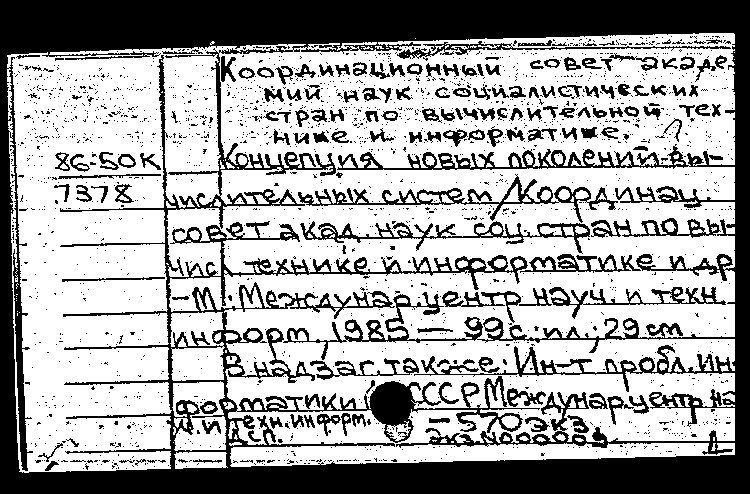 Координационный совет акаде-
мий наук социалистических
стран по вычислительной тех-
нике и информатике.
86-50К Концепция новых поколений вы-
7378 числительных систем / Координац.
совет акад. наук соц. стран по вы-
числ. технике и информатике и др.
– М.: Междунар. центр науч. и техн.
информ., 1985 — 99 с.: ил.; 29 см.
В надзаг. также: Ин-т пробл. Ин-
форматики СССР, Междунар. центр на
и техн. информ. — 570 экз.
Дсп. экз. N000009